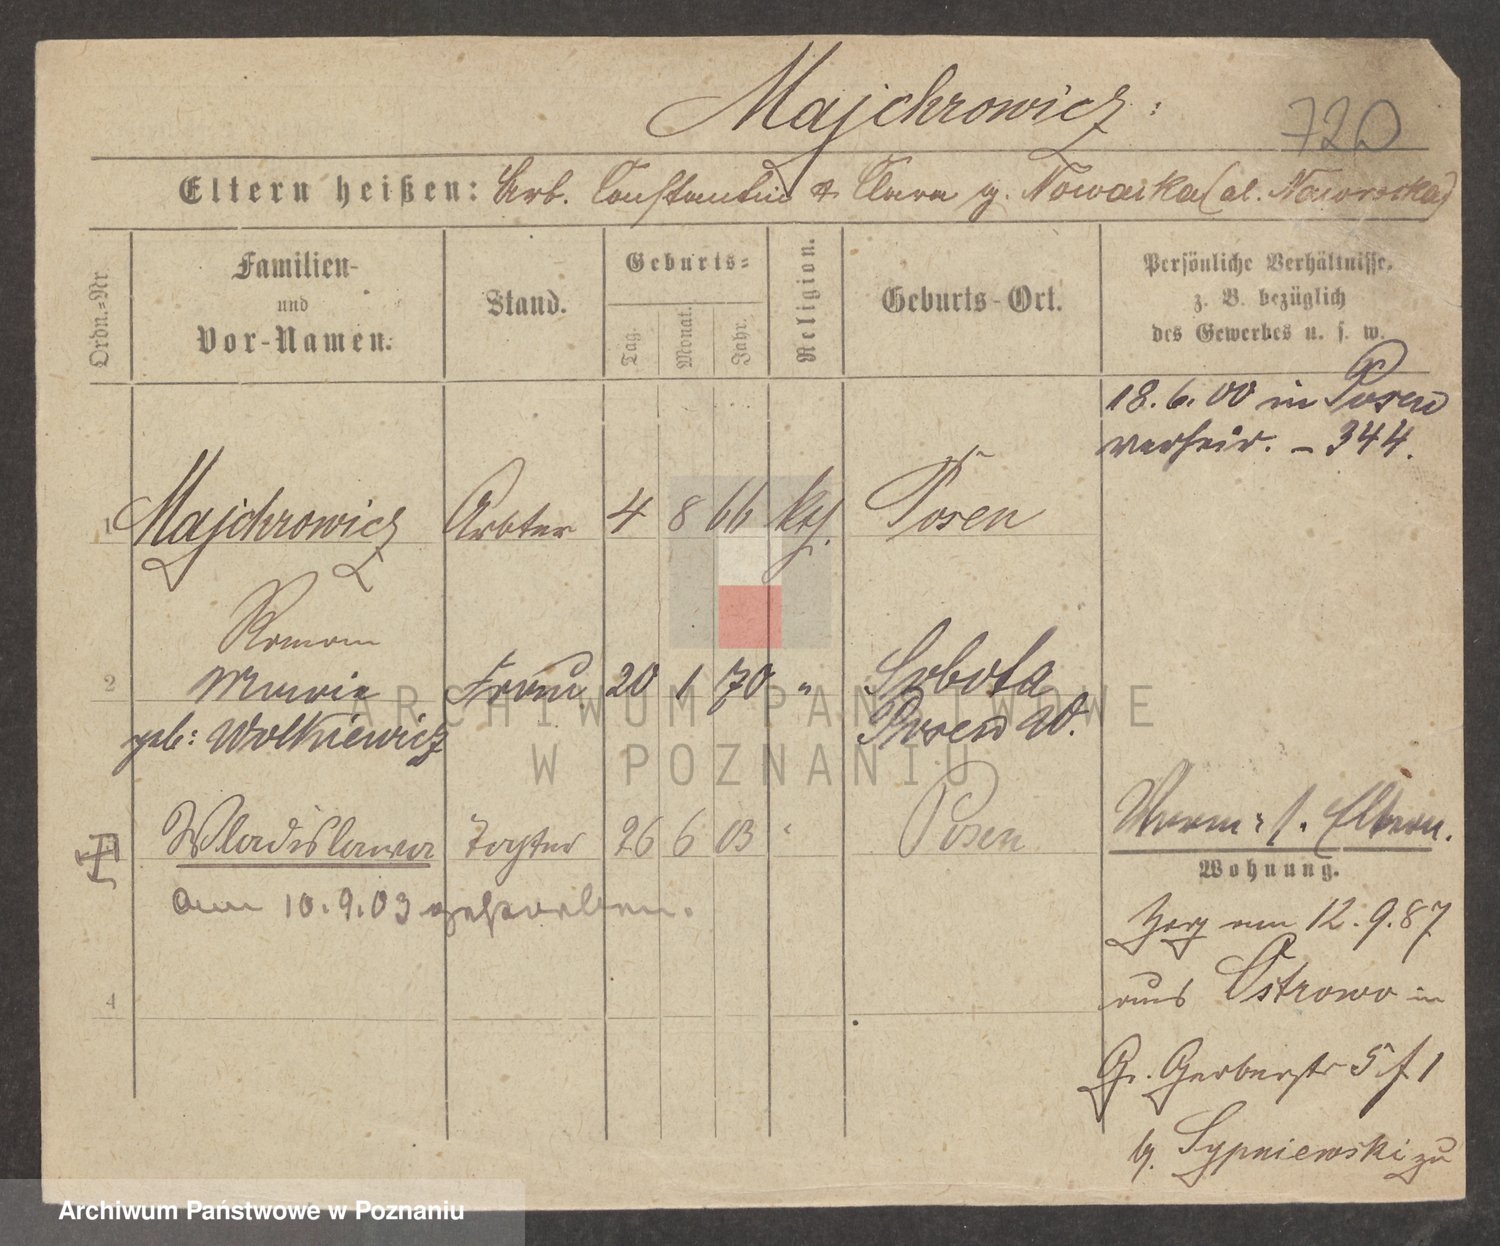 Majchrowicz:
720
Eltern heißen: Arb. Constantin & Clara g. Nowacka (al. Nawrocka)
Ordn.-Nr.
Familien-
und
Vor-Namen.
Stand.
Geburts-
Tag.
Monat.
Jahr.
Religion.
Geburts-Ort.
Persönliche Verhältnisse,
z. B. bezüglich
des Gewerbes u. s. w.
18.6.00 in Posen
verheir. – 344.
1 Majchrowicz Arbter 4 8 66 kth. Posen
Roman
2 Marie Frau 20 1 70 " Sobota
geb: Wolkiewicz Posen W.
Wladislawa Tochter 26 6 03 " Posen
Vorm: s. Eltern.
am 10.9.03 gestorben.
Wohnung.
Zurz am 12.9.87
aus Ostrowo in
4
Gr. Gerberstr 5 f 1
b. Sypniewski zu
ARCHIWUM PAŃSTWOWE
W POZNANIU
Archiwum Państwowe w Poznaniu